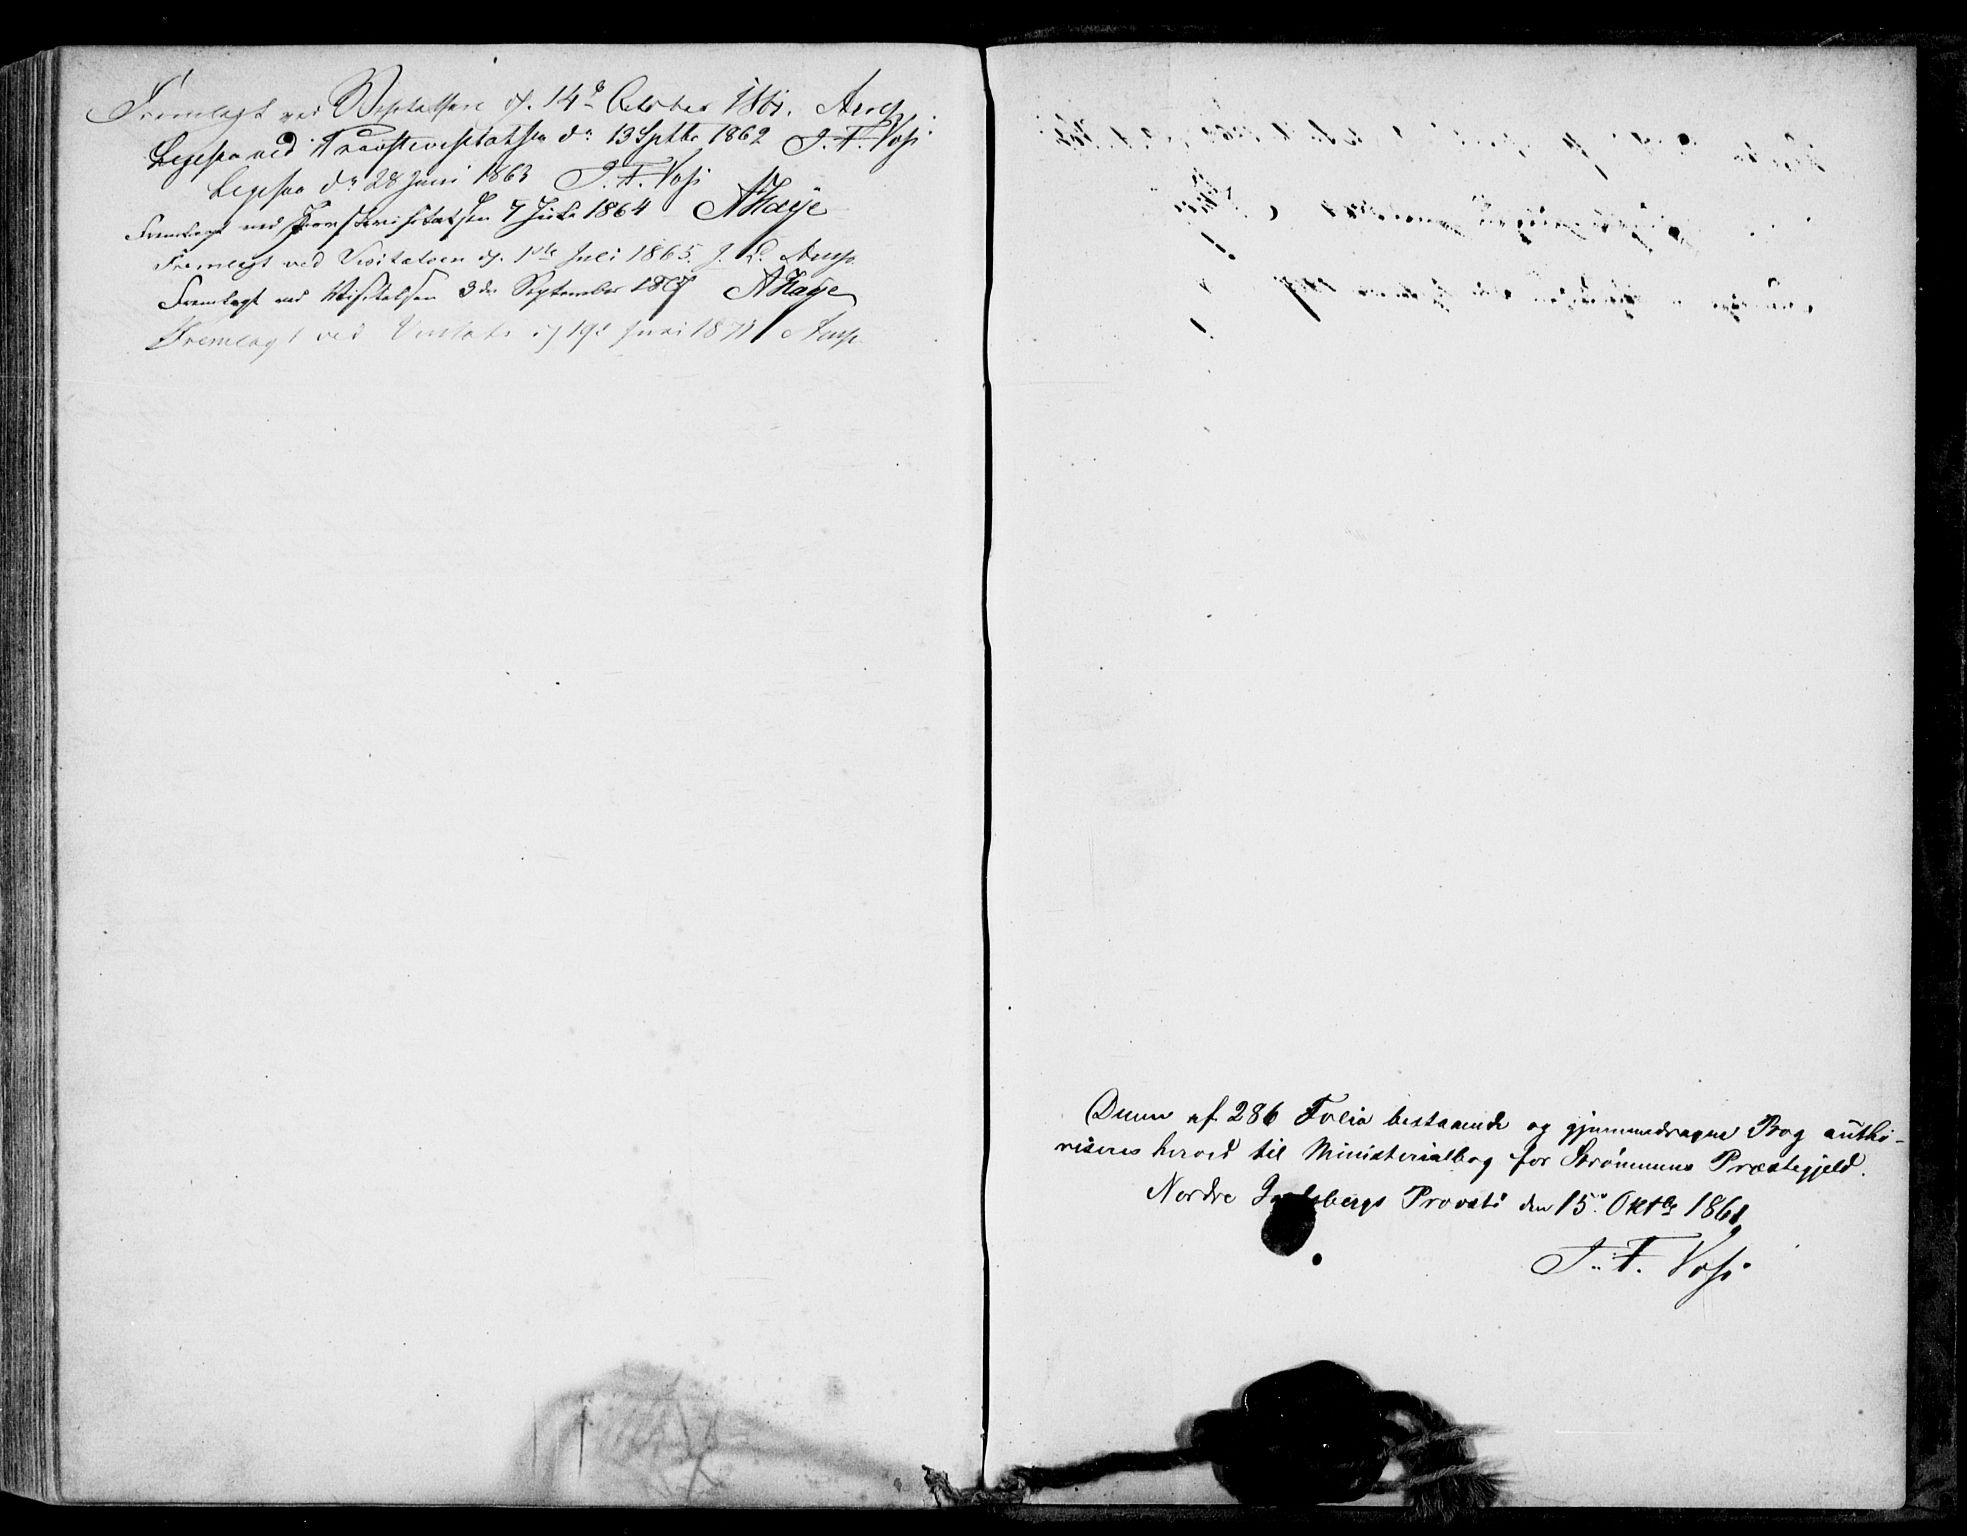 Fremlagt ved Visitatsen d. 14de October 1861. Arup
Legesaa ved Provstevisitatsen dn 13 Septbr 1862 J. F. Voss
Legesaa dn 28 Juni 1863 J. F. Voss
Fremlagt ved Provstevisitatsen 7 Juli 1864 AHaye
Fremlagt ved Visitatsen d. 1ste Juli 1865. J. L. Arup.
Fremlagt ved Visitatsen 3die September 1867 AHaye
Fremlagt ved Visitats d 19d Juni 1871 Arup
Denne af 286 Folia bestaaende og gjennemdragne Bog autho-
riseres herved til Ministerialbog for Strømmens Præstegjeld.
Nordre Jarlsbergs Provsti den 15de Oktbr 1861,
J. F. Voss